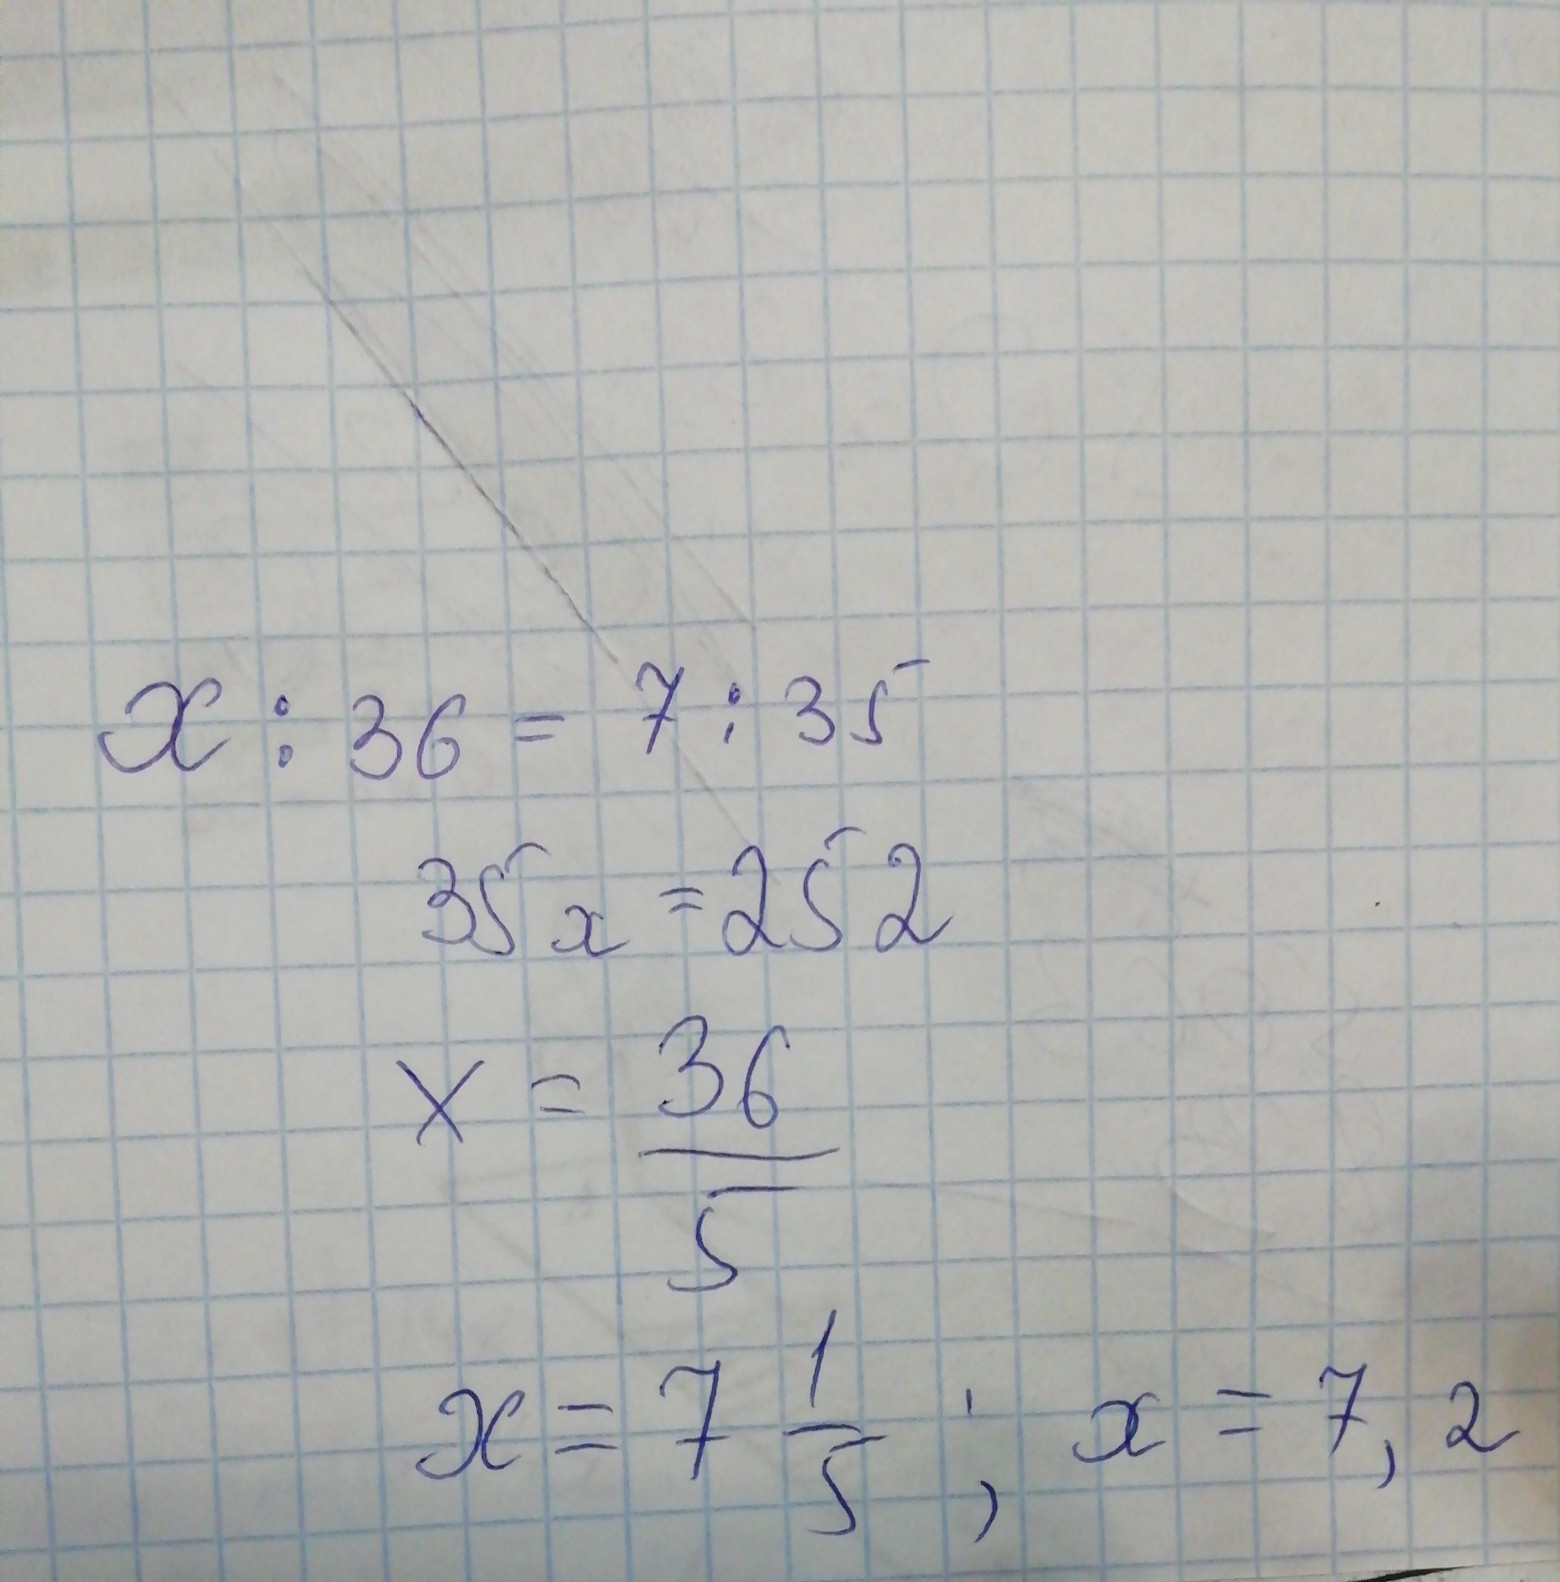 x : 36 = 7 : 35
35x = 252
x = 36/5
x = 7 1/5 ; x = 7,2